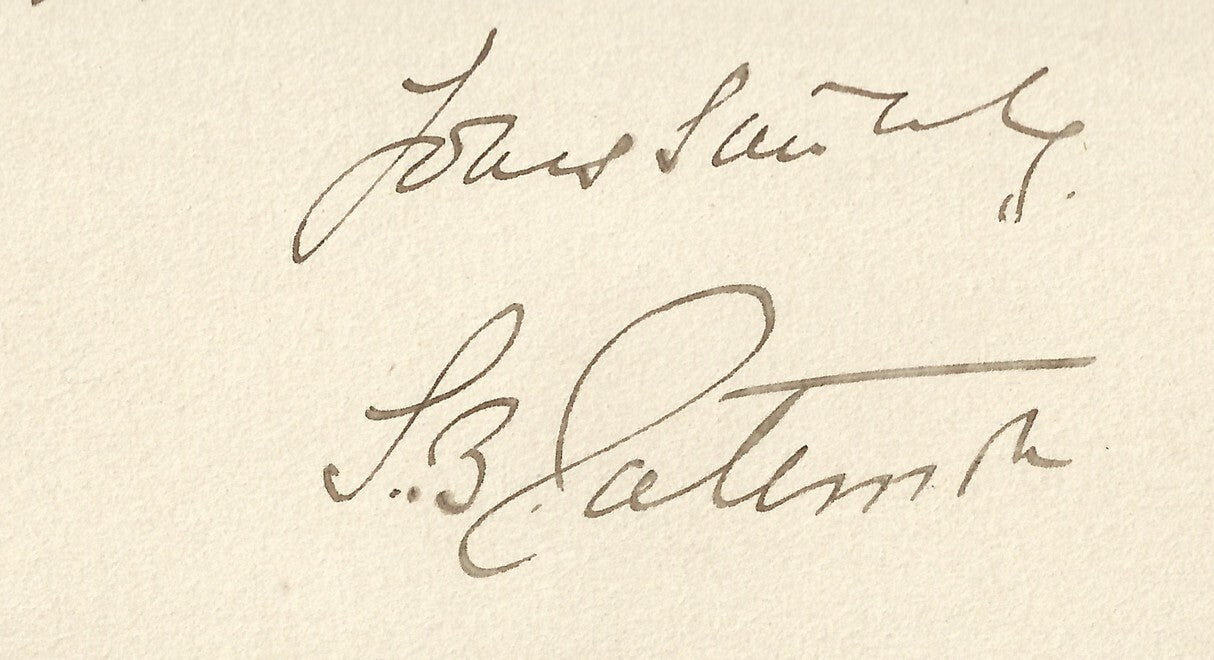 Yours faithfully
J. B. Paterson